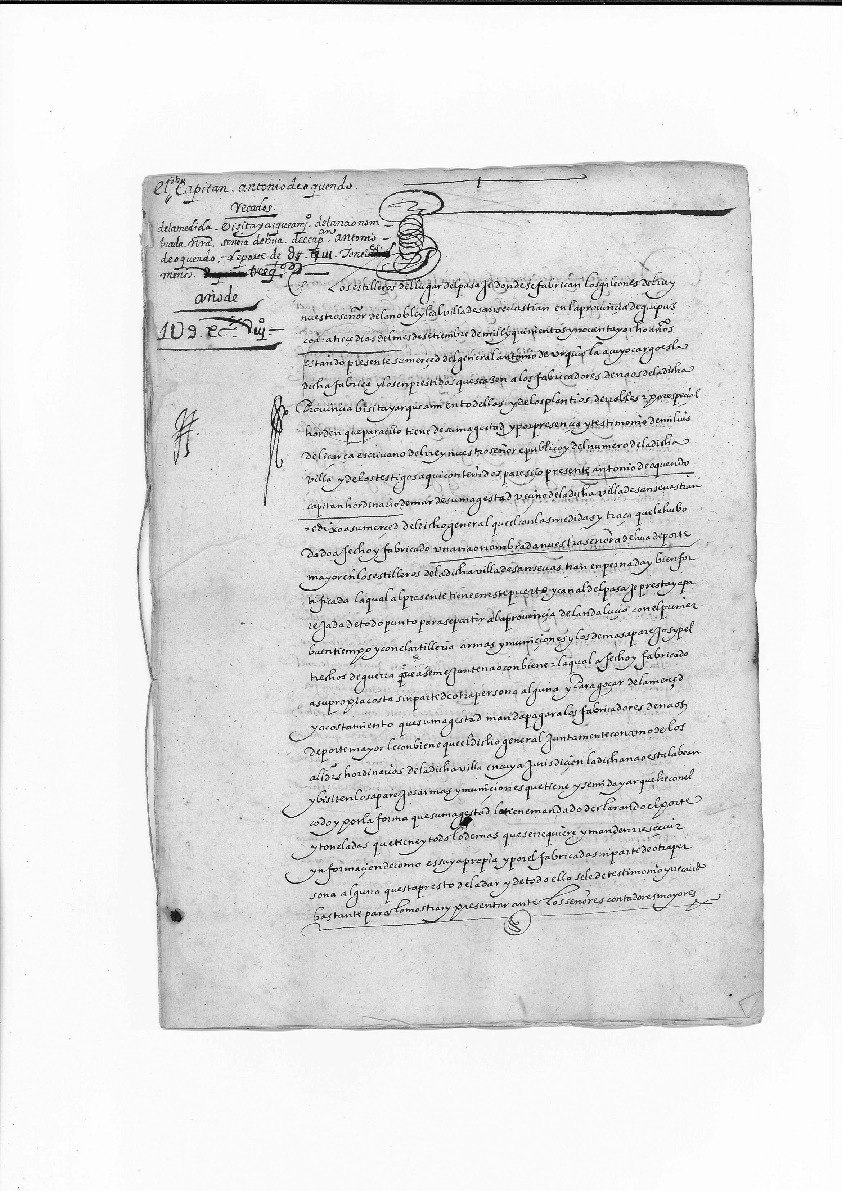 El Capitan. antonio de oquendo.
Recados.
de la medida. Visita y arqueamº. de la nao nom
brada nra. señora de hua. del cap. antonio
de oquendo.
año de
En los estilleros del lugar del pasaje donde se fabrican los galeones del rey
nuestro señor de la noble y leal villa de san sebastian en la provincia de guipuz
coa a trece dias del mes de setiembre de mill y quinientos y noventa y ocho años
estando presente su merced del general antonio de urquiola a cuyo cargo es la
dicha fabrica y los enprestidos que se azen a los fabricadores de naos de la dicha
Provincia bisita y arqueamiento dellos y de los plantios de robles por especial
horden que para ello tiene de su magestad y por presencia y testimonio de mi luis
de escriuano del rey nuestro señor e publico y del numero de la dicha
villa y de los testigos aqui contenidos parescio presente antonio de oquendo
capitan hordinario de mar de su magestad vezino de la dicha villa de san sevastian
e dixo a su merced del dicho general que el con las medidas y traça que le hubo
dado a fecho y fabricado una nao nombrada nuestra señora de hua de porte
mayor en los estilleros de la dicha villa de san sevastian enpernada y bien for
tificada la qual al presente tiene en este puerto y canal del pasaje presta y apa
rejada de todo punto para se partir a la provincia del andalucia con el primer
buen tiempo y con el artilleria armas y municiones y los demas aparejos y pel
trechos de guerra que a semejante nao conbiene la qual a fecho y fabricado
a su propia costa sin parte de otra persona alguna y para goçar de la merced
y acostamiento que su magestad manda pagar a los fabricadores de naos
de porte mayor le conbiene que el dicho general juntamente con uno de los
alcaldes hordinarios de la dicha villa en cuya jurisdicion la dicha nao esta la bean
y bisiten los aparejos armas y municiones que tiene y se mida y arquee con el
codo y por la forma que su magestad lo tiene mandado declarando el porte
y toneladas que tiene y todo lo demas que se requiere y manden rescivir
ynformacion de como es suya propia y por el fabricada sin parte de otra per
sona alguna questa presto de la dar y de todo ello se le de testimonio y recaudo
bastante para lo mostrar y presentar ante los señores contadores mayores